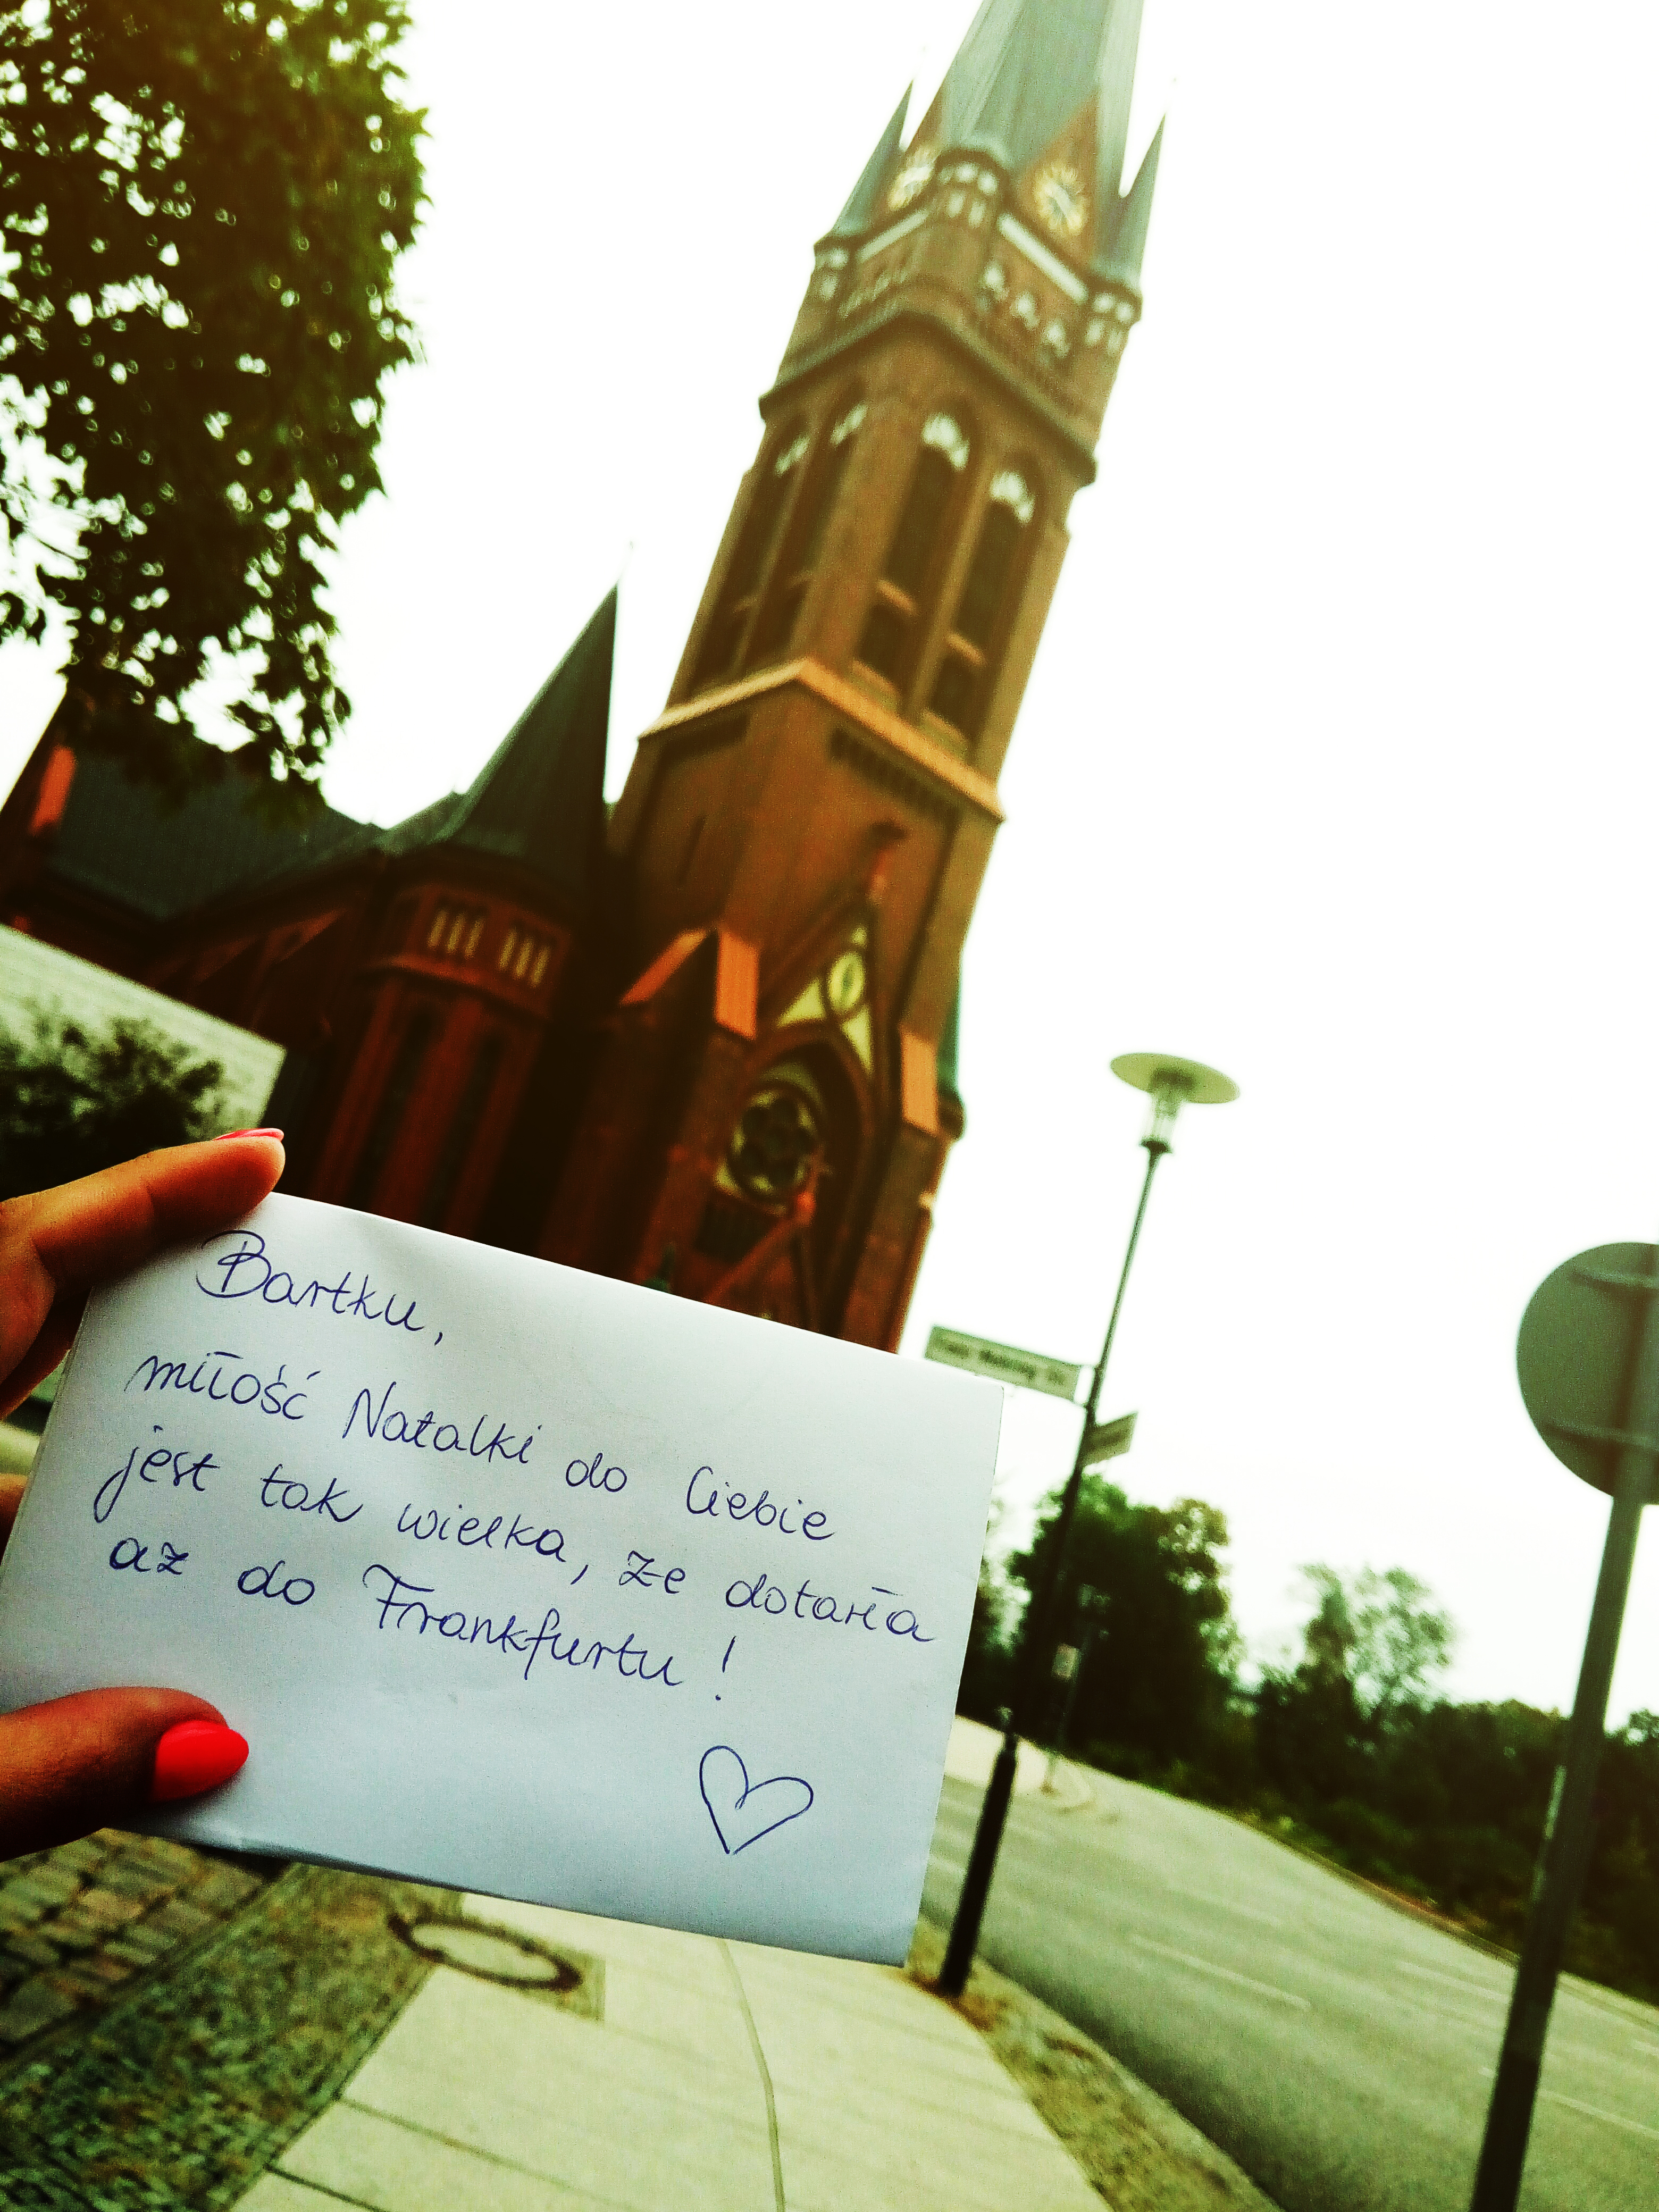 Bartku,
miłość Natalki do Ciebie
jest tak wielka, że dotarła
aż do Frankfurtu!